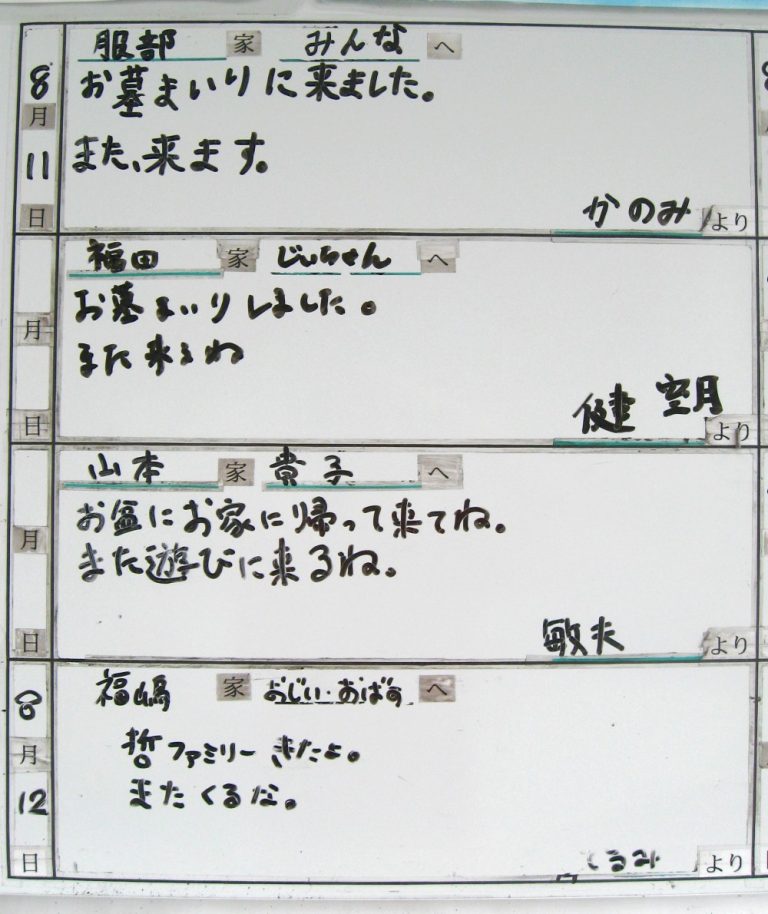 8月11日
服部 家 みんな へ
お墓まいりに来ました。
また、来ます。
かのみ より
月 日
福田 家 じいちゃん へ
お墓まいりしました。
また来るね
健 空月 より
月 日
山本 家 貴子 へ
お盆にお家に帰って来てね。
また遊びに来るね。
敏夫 より
8月12日
福嶋 家 おじい・おばあ へ
哲ファミリーきたよ。
またくるな。
くるみ より